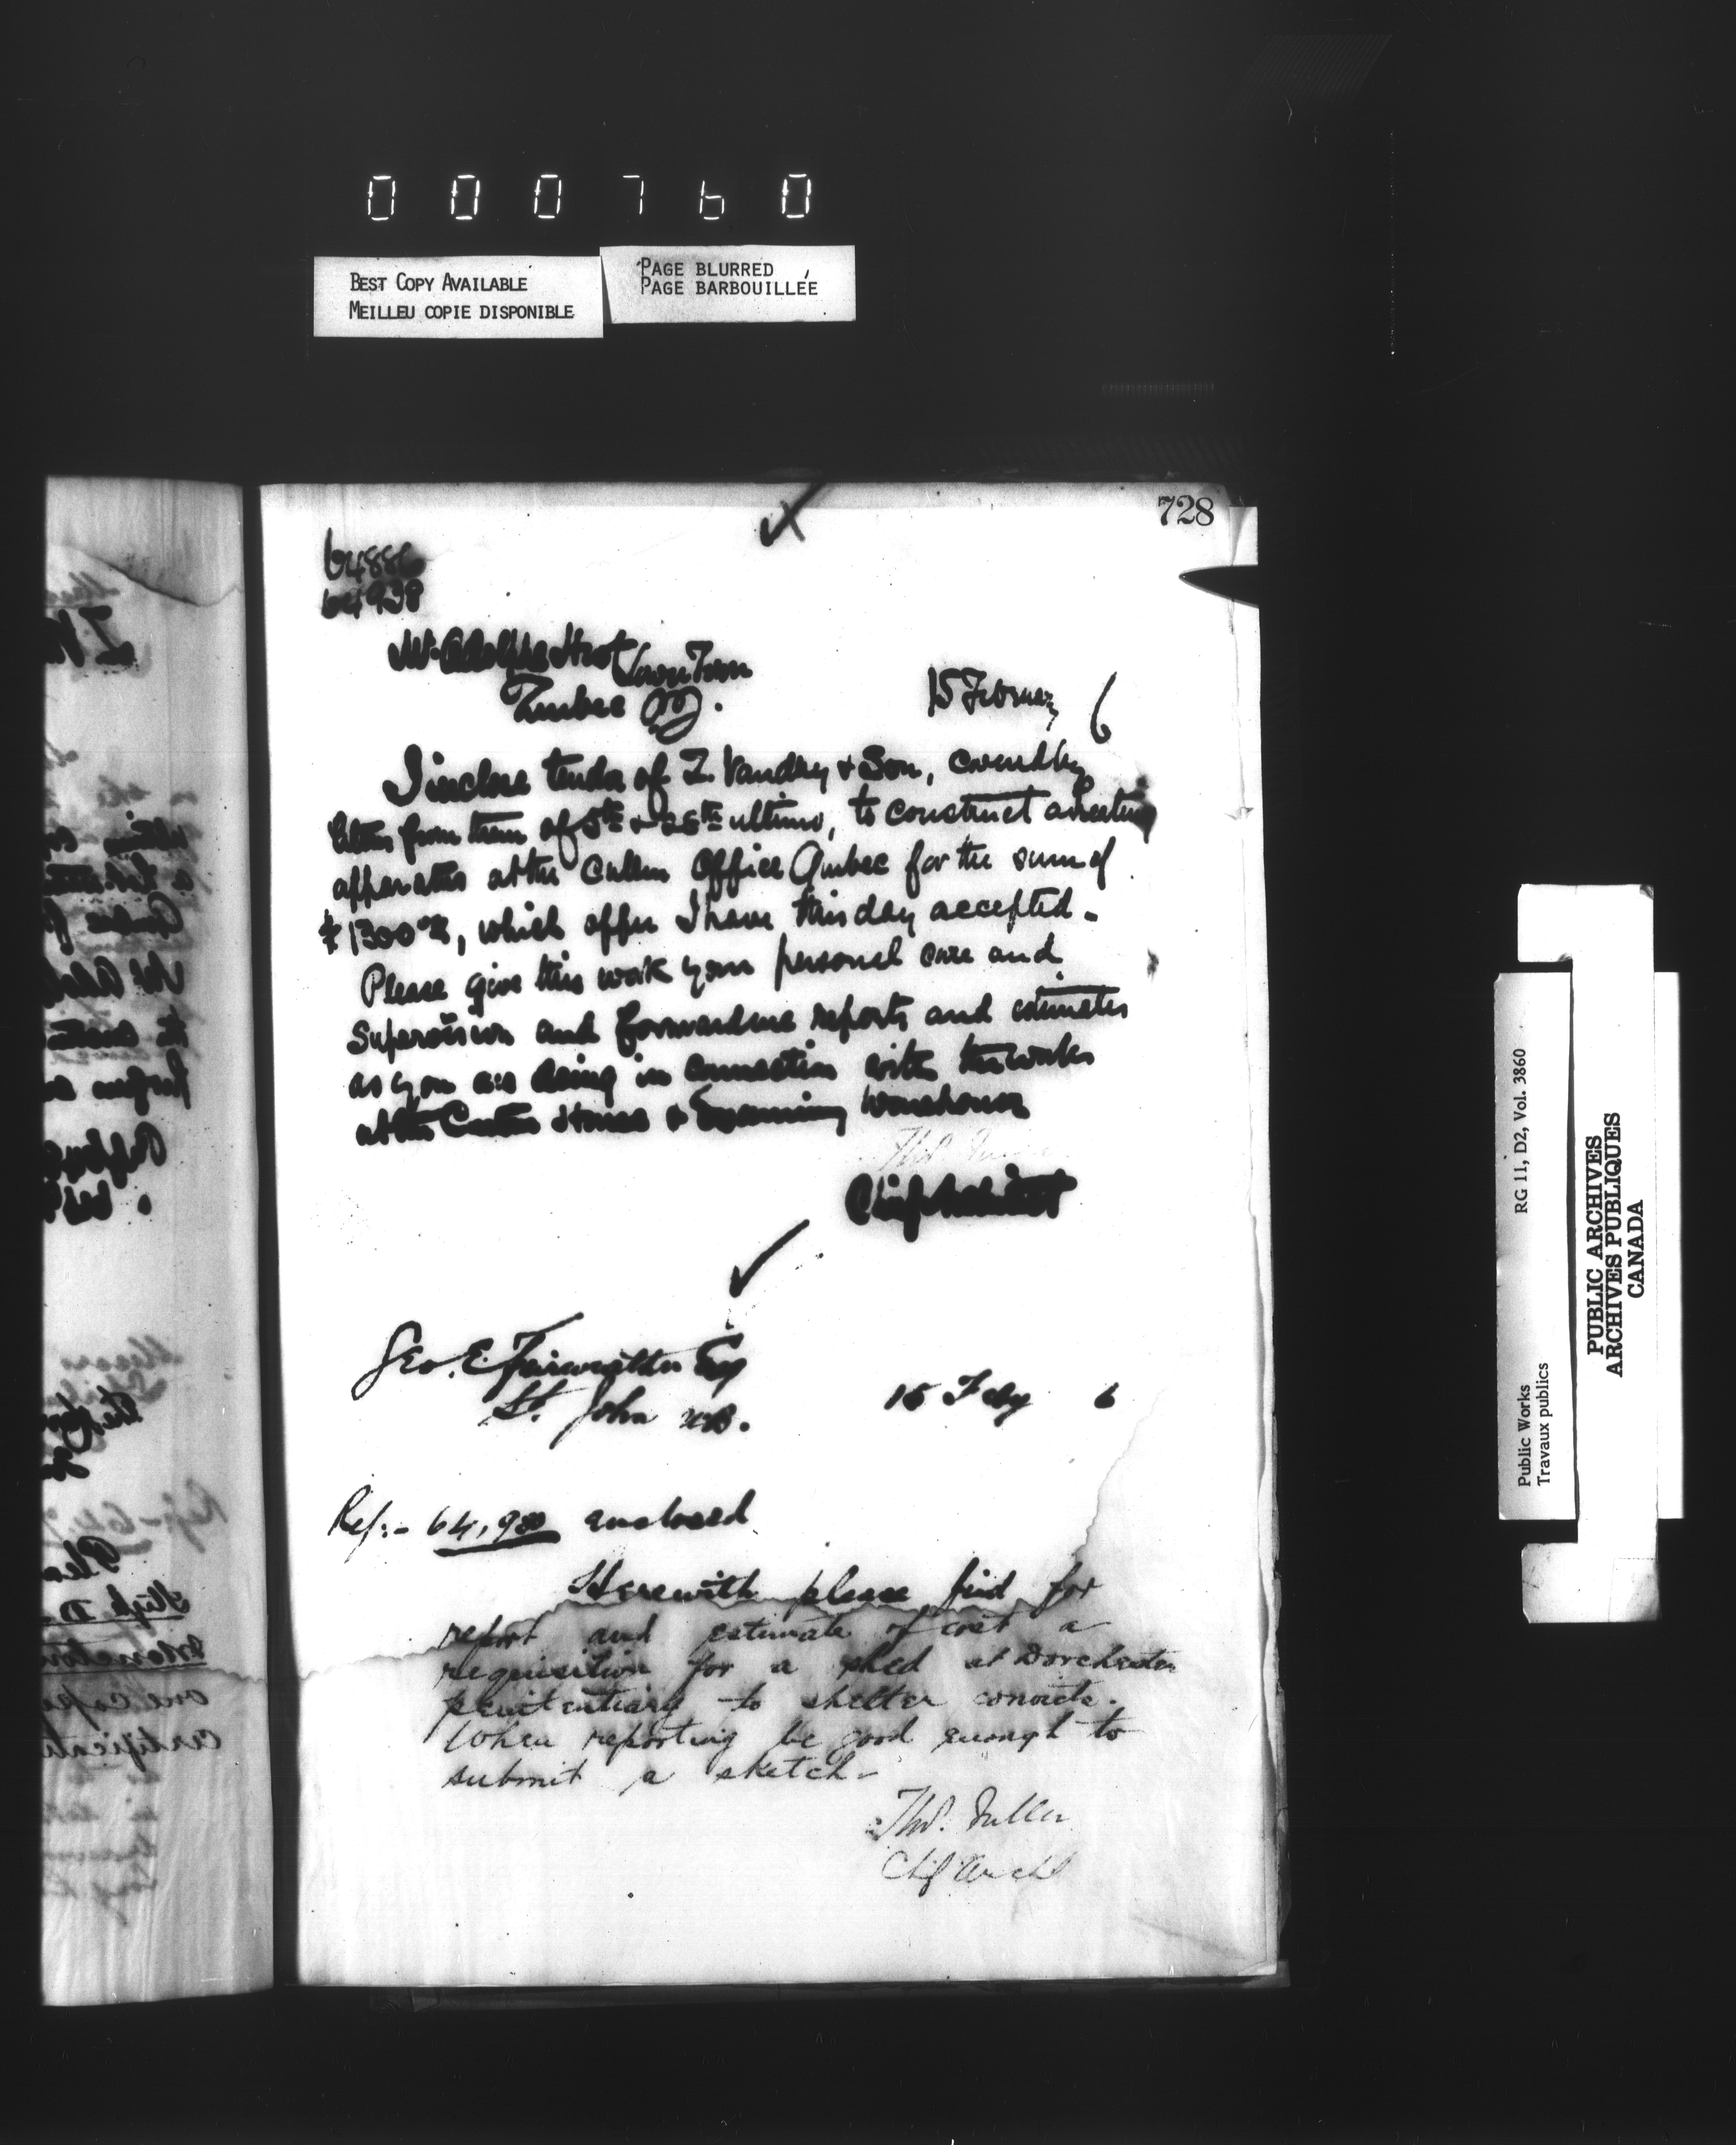 000760
BEST COPY AVAILABLE
MEILLEU COPIE DISPONIBLE
PAGE BLURRED
PAGE BARBOUILLÉE
728
64886
64938
Mr. Adolphe
Lower Town
Quebec
15 February 6
I inclose tender of Z. Vandry & Son, covered by
letters from them of 5th & 26th ultimo, to construct a heating
apparatus at the Cullers Office Quebec for the sum of
$1300, which offer I have this day accepted.
Please give this work your personal care and
supervision and forward me reports and estimates
as you are doing in connection with the works
at the Custom House & Examining Warehouse
Thos. Fuller
Chief Architect
Geo. E. Fairweather Esq
St. John N.B.
15 Feby 6
Ref:- 64,980 enclosed
Herewith please find for
report and estimate of cost a
requisition for a shed at Dorchester
penitentiary to shelter convicts.
When reporting be good enough to
submit a sketch-
Thos. Fuller
Chf Archt
Public Works
Travaux publics
RG 11, D2, Vol. 3860
PUBLIC ARCHIVES
ARCHIVES PUBLIQUES
CANADA